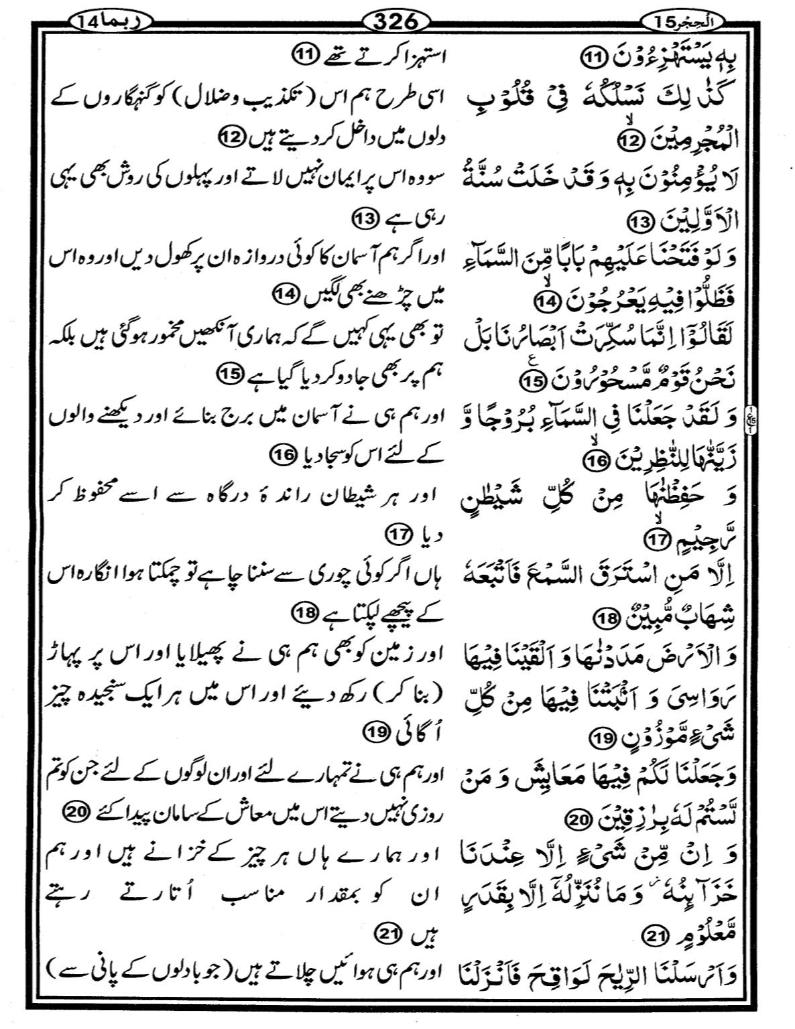 الحجر 15
326
ربما 14
بِهٖ يَسْتَهْزِءُوْنَ 11
كَذٰلِكَ نَسْلُكُهٗ فِيْ قُلُوْبِ
الْمُجْرِمِيْنَ ۙ 12
لَا يُؤْمِنُوْنَ بِهٖ وَقَدْ خَلَتْ سُنَّةُ
الْاَوَّلِيْنَ 13
وَلَوْ فَتَحْنَا عَلَيْهِمْ بَابًا مِّنَ السَّمَآءِ
فَظَلُّوْا فِيْهِ يَعْرُجُوْنَ ۙ 14
لَقَالُوْٓا اِنَّمَا سُكِّرَتْ اَبْصَارُنَا بَلْ
نَحْنُ قَوْمٌ مَّسْحُوْرُوْنَ ع 15
وَلَقَدْ جَعَلْنَا فِي السَّمَآءِ بُرُوْجًا وَّ
زَيَّنّٰهَا لِلنّٰظِرِيْنَ ۙ 16
وَ حَفِظْنٰهَا مِنْ كُلِّ شَيْطٰنٍ
رَّجِيْمٍ ۙ 17
اِلَّا مَنِ اسْتَرَقَ السَّمْعَ فَاَتْبَعَهٗ
شِهَابٌ مُّبِيْنٌ 18
وَالْاَرْضَ مَدَدْنٰهَا وَ اَلْقَيْنَا فِيْهَا
رَوَاسِيَ وَ اَنْۢبَتْنَا فِيْهَا مِنْ كُلِّ
شَيْءٍ مَّوْزُوْنٍ 19
وَجَعَلْنَا لَكُمْ فِيْهَا مَعَايِشَ وَ مَنْ
لَّسْتُمْ لَهٗ بِرٰزِقِيْنَ 20
وَ اِنْ مِّنْ شَيْءٍ اِلَّا عِنْدَنَا
خَزَآئِنُهٗ ۡ وَمَا نُنَزِّلُهٗٓ اِلَّا بِقَدَرٍ
مَّعْلُوْمٍ 21
وَاَرْسَلْنَا الرِّيٰحَ لَوَاقِحَ فَاَنْزَلْنَا
استہزا کرتے تھے 11
اسی طرح ہم اس (تکذیب وضلال) کو گنہگاروں کے
دلوں میں داخل کر دیتے ہیں 12
سو وہ اس پر ایمان نہیں لاتے اور پہلوں کی روش بھی یہی
رہی ہے 13
اور اگر ہم آسمان کا کوئی دروازہ ان پر کھول دیں اور وہ اس
میں چڑھنے بھی لگیں 14
تو بھی یہی کہیں گے کہ ہماری آنکھیں مخمور ہوگئی ہیں بلکہ
ہم پر بھی جادو کر دیا گیا ہے 15
اور ہم ہی نے آسمان میں برج بنائے اور دیکھنے والوں
کے لئے اس کو سجا دیا 16
اور ہر شیطان راندۂ درگاہ سے اسے محفوظ کر
دیا 17
ہاں اگر کوئی چوری سے سننا چاہے تو چمکتا ہوا انگارہ اس
کے پیچھے لپکتا ہے 18
اور زمین کو بھی ہم ہی نے پھیلایا اور اس پر پہاڑ
(بنا کر) رکھ دیئے اور اس میں ہر ایک سنجیدہ چیز
اُگائی 19
اور ہم ہی نے تمہارے لئے اور ان لوگوں کے لئے جن کو تم
روزی نہیں دیتے اس میں معاش کے سامان پیدا کئے 20
اور ہمارے ہاں ہر چیز کے خزانے ہیں اور ہم
ان کو بمقدار مناسب اُتارتے رہتے
ہیں 21
اور ہم ہی ہوائیں چلاتے ہیں (جو بادلوں کے پانی سے)